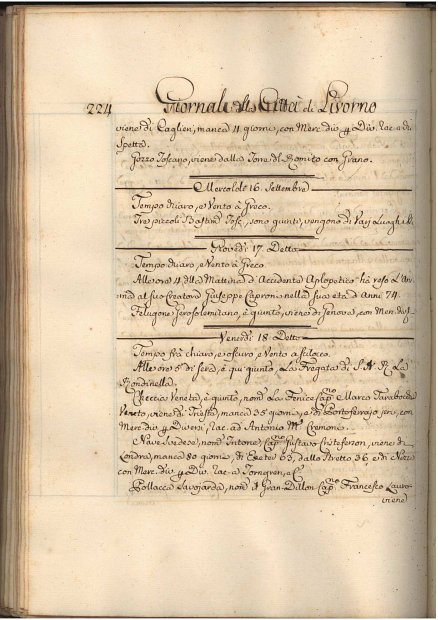 224 Giornale della Città di Livorno
viene di Caglieri, manca 4 giorni, con Merc. div. p Div. Rac. a di
Spetta.
Gozzo Toscano, viene dalla Torre del Romito con Grano.
Mercoledì 16. Settembre
Tempo chiaro, e Vento à Greco.
Tre piccoli Bastim. Tosc. sono giunti, vengono di Varj Luoghi
Giovedì 17. Detto
Tempo chiaro, e Vento à Greco.
Alle ore 4 della Mattina d'Accidente Aplopetico hà reso l'Ani-
ma al suo Creatore Giuseppe Caproni nella sua età d'Anni 74.
Felugone Jerosolemitano, è giunto, viene di Genova, con Merc. div.
Venerdì 18. Detto
Tempo frà chiaro, e oscuro, e Vento a Scilocco.
Alle ore 5 di sera, è qui giunto, La Fregata di S. A. R. La
Rondinella.
Checcia Veneta, è giunto, nom. La Fenice Cap.no Marco Tarabochia
Veneto, viene di Trieste, manca 35 giorni, e di Portoferrajo jeri, con
Merc. div. p Diversi, Rac. ad Antonio M.
Nave Svedese, nom. Cap.no Gustavo Cristeferson, viene di
Londra, manca 80 giorni, di Exeter 63, dallo Stretto 36 e di
con Merc. div. p Div. Rac. a Törngren, e C.
Pollacca Savojarda, nom. il Gran-Dillon Cap.no Francesco Lauro
viene